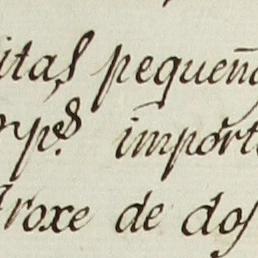 itas pequeñ
pes. import
roxe de dos